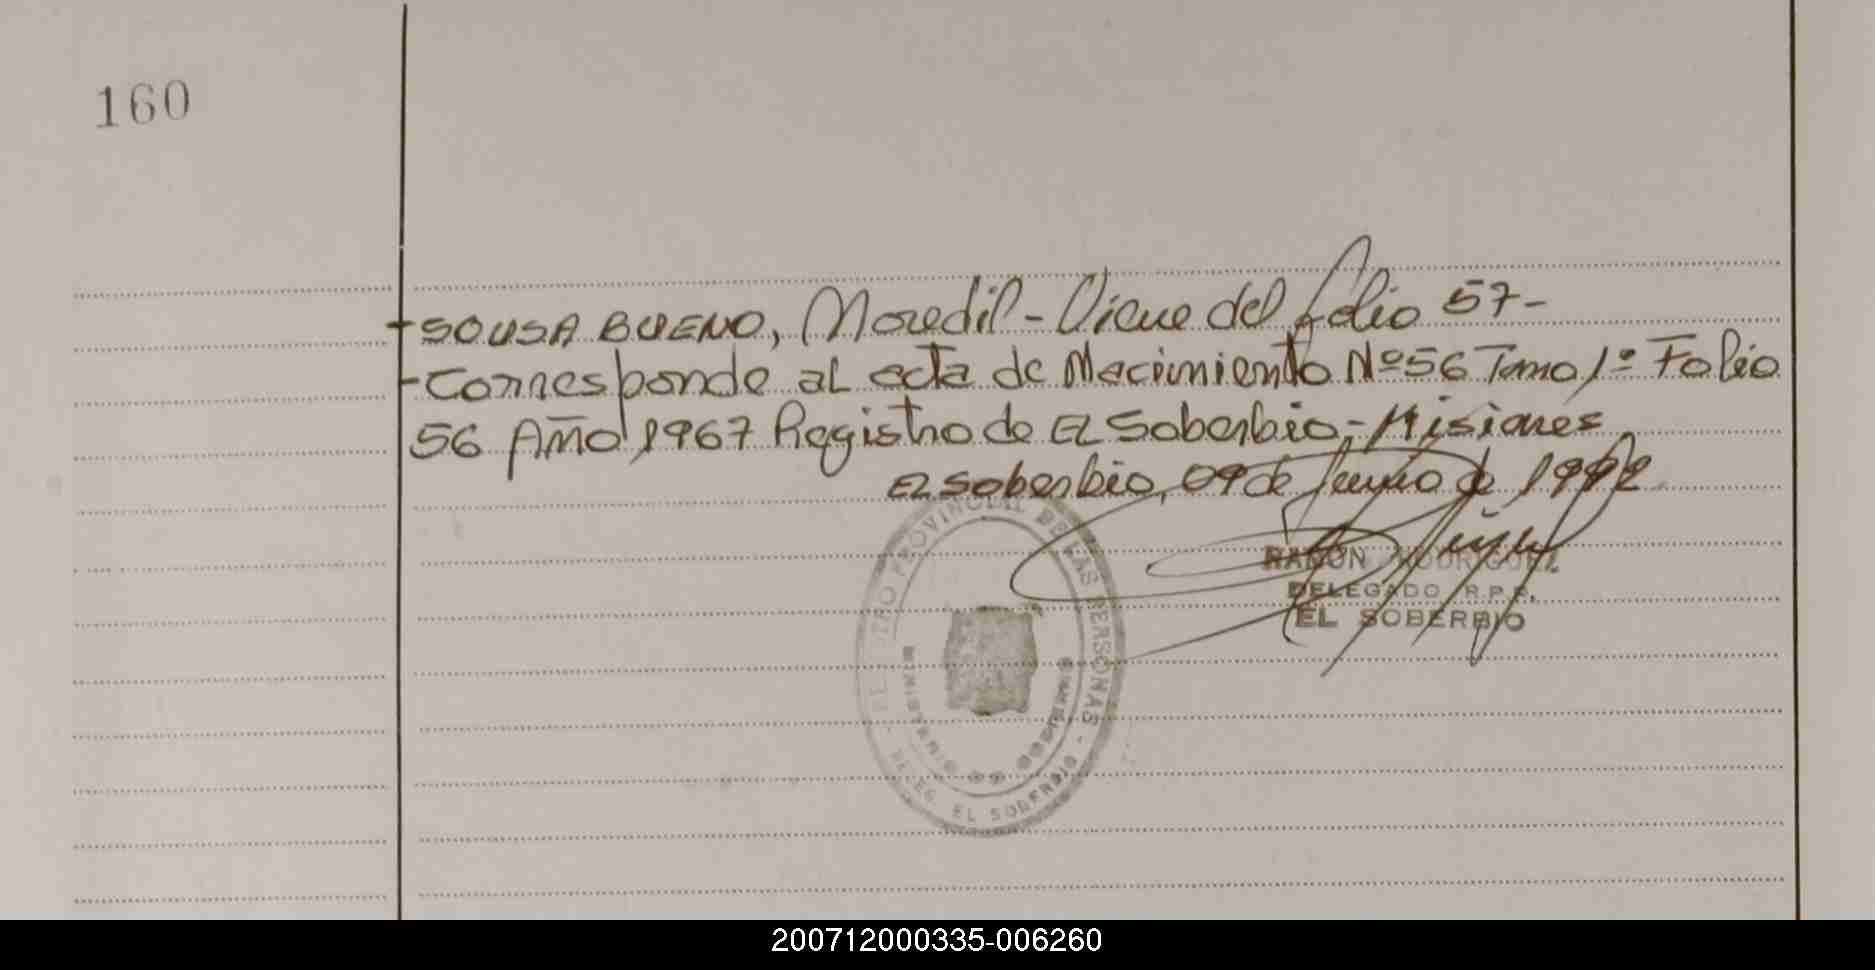 160
-SOUSA BUENO, Moredil - Viene del folio 57-
-Corresponde al acta de Nacimiento Nº 56 Tomo 1º Folio
56 Año 1967 Registro de El Soberbio - Misiones
El Soberbio, 09 de Junio de 1992
RAMON RODRIGUEZ
DELEGADO R.P.P.
EL SOBERBIO
PROVINCIAL DE LAS PERSONAS - DELEG. EL SOBERBIO
MINISTERIO DE GOBIERNO
200712000335-006260